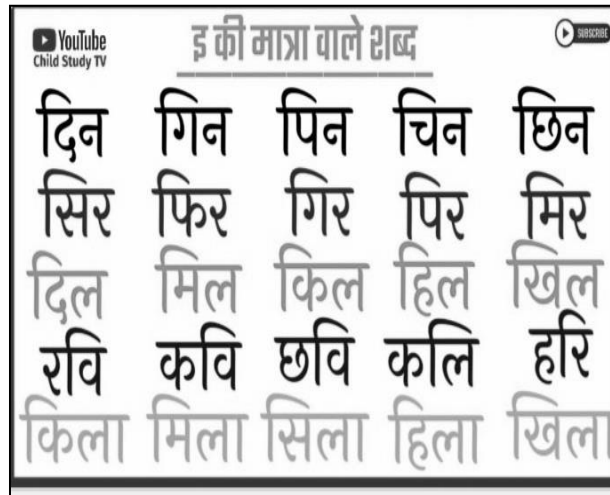 YouTube
Child Study TV
इ की मात्रा वाले शब्द
SUBSCRIBE
दिन गिन पिन चिन छिन
सिर फिर गिर पिर मिर
दिल मिल किल हिल खिल
रवि कवि छवि कलि हरि
किला मिला सिला हिला खिला